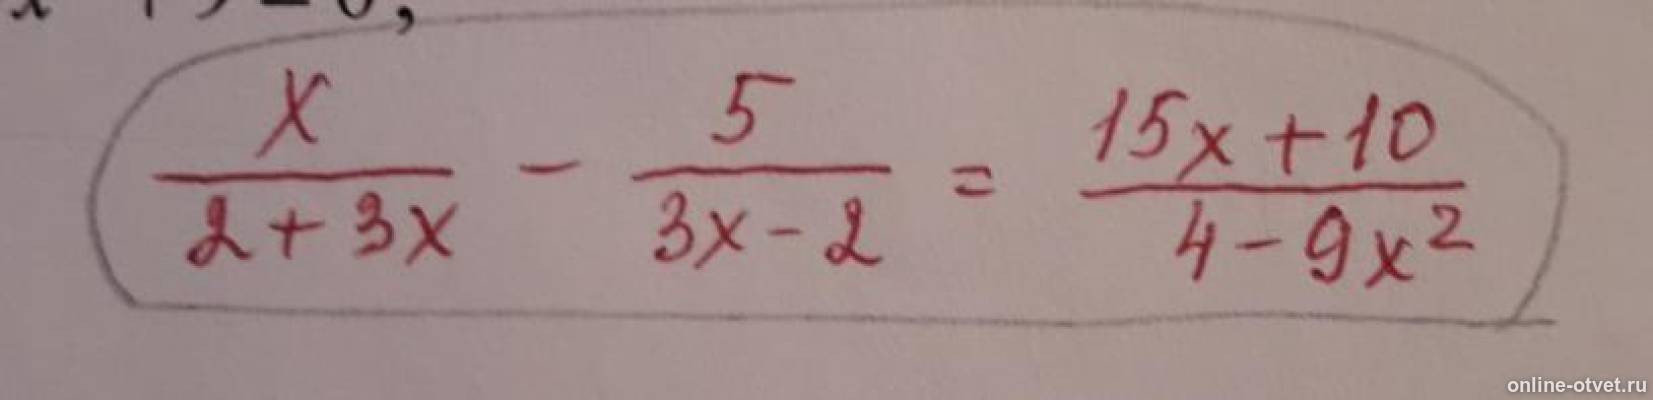 x/(2+3x) - 5/(3x-2) = (15x+10)/(4-9x²)
online-otvet.ru